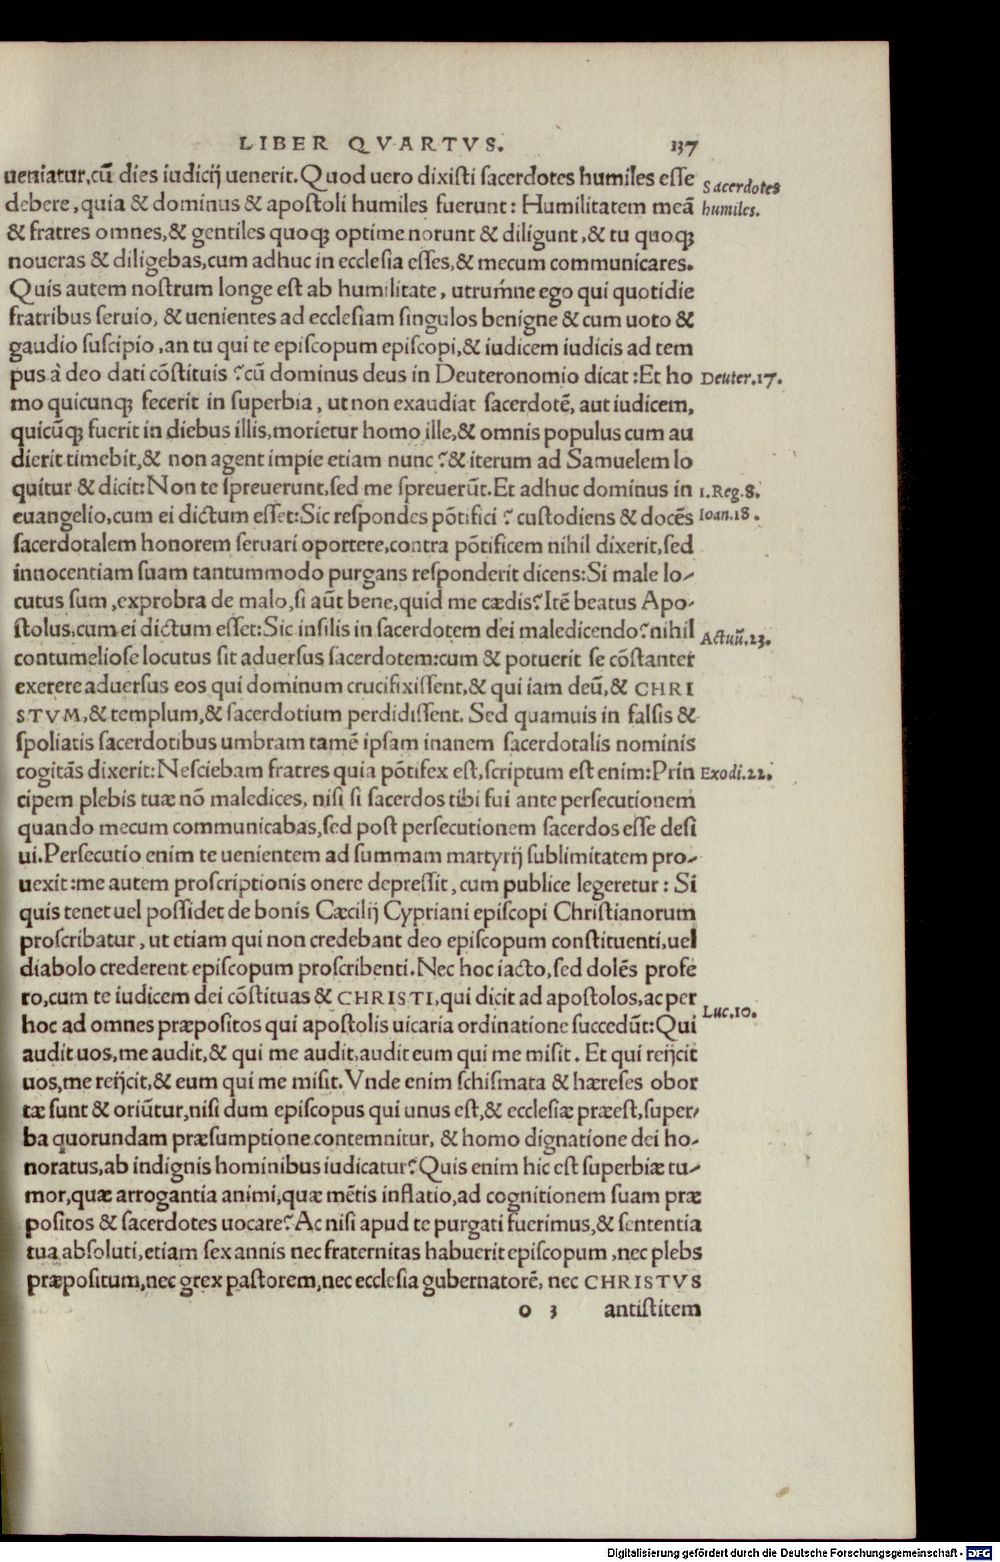 LIBER QVARTVS. 137
ueniatur,cū dies iudicij uenerit.Quod uero dixiſti ſacerdotes humiles eſſe
Sacerdotes
debere,quia & dominus & apoſtoli humiles fuerunt: Humilitatem meā
humiles.
& fratres omnes,& gentiles quoqꝫ optime norunt & diligunt,& tu quoqꝫ
noueras & diligebas,cum adhuc in eccleſia eſſes,& mecum communicares.
Quis autem noſtrum longe eſt ab humilitate, utrum̄ne ego qui quotidie
fratribus ſeruio, & uenientes ad eccleſiam ſingulos benigne & cum uoto &
gaudio ſuſcipio,an tu qui te epiſcopum epiſcopi,& iudicem iudicis ad tem
pus à deo dati cōſtituis?cū dominus deus in Deuteronomio dicat:Et ho
Deuter.17.
mo quicunqꝫ fecerit in ſuperbia, ut non exaudiat ſacerdotē, aut iudicem,
quicūqꝫ fuerit in diebus illis,morietur homo ille,& omnis populus cum au
dierit timebit,& non agent impie etiam nunc?& iterum ad Samuelem lo
quitur & dicit:Non te ſpreuerunt,ſed me ſpreuerūt.Et adhuc dominus in
1.Reg.8.
euangelio,cum ei dictum eſſet:Sic reſpondes pōtifici? cuſtodiens & docēs
Ioan.18.
ſacerdotalem honorem ſeruari oportere,contra pōtificem nihil dixerit,ſed
innocentiam ſuam tantummodo purgans reſponderit dicens:Si male lo-
cutus ſum,exprobra de malo,ſi aūt bene,quid me cædis?Itē beatus Apo-
ſtolus,cum ei dictum eſſet:Sic inſilis in ſacerdotem dei maledicendo?nihil
Actuū.23.
contumelioſe locutus ſit aduerſus ſacerdotem:cum & potuerit ſe cōſtanter
exerere aduerſus eos qui dominum crucifixiſſent,& qui iam deū,& CHRI
STVM,& templum,& ſacerdotium perdidiſſent. Sed quamuis in falſis &
ſpoliatis ſacerdotibus umbram tamē ipſam inanem ſacerdotalis nominis
cogitās dixerit:Neſciebam fratres quia pōtifex eſt,ſcriptum eſt enim:Prin
Exodi.22.
cipem plebis tuæ nō maledices, niſi ſi ſacerdos tibi fui ante perſecutionem
quando mecum communicabas,ſed poſt perſecutionem ſacerdos eſſe deſi
ui.Perſecutio enim te uenientem ad ſummam martyrij ſublimitatem pro-
uexit:me autem proſcriptionis onere depreſſit,cum publice legeretur: Si
quis tenet uel poſſidet de bonis Cæcilij Cypriani epiſcopi Chriſtianorum
proſcribatur, ut etiam qui non credebant deo epiſcopum conſtituenti,uel
diabolo crederent epiſcopum proſcribenti.Nec hoc iacto,ſed dolēs profe
ro,cum te iudicem dei cōſtituas & CHRISTI,qui dicit ad apoſtolos,ac per
Luc.10.
hoc ad omnes præpoſitos qui apoſtolis uicaria ordinatione ſuccedūt:Qui
audit uos,me audit,& qui me audit,audit eum qui me miſit. Et qui reijcit
uos,me reijcit,& eum qui me miſit.Vnde enim ſchiſmata & hæreſes obor
tæ ſunt & oriūtur,niſi dum epiſcopus qui unus eſt,& eccleſiæ præeſt,ſuper-
ba quorundam præſumptione contemnitur, & homo dignatione dei ho-
noratus,ab indignis hominibus iudicatur?Quis enim hic eſt ſuperbiæ tu-
mor,quæ arrogantia animi,quæ mētis inflatio,ad cognitionem ſuam præ
poſitos & ſacerdotes uocare?Ac niſi apud te purgati fuerimus,& ſententia
tua abſoluti,etiam ſex annis nec fraternitas habuerit epiſcopum,nec plebs
præpoſitum,nec grex paſtorem,nec eccleſia gubernatorē, nec CHRISTVS
o 3 antiſtitem
Digitalisierung gefördert durch die Deutsche Forschungsgemeinschaft - DFG